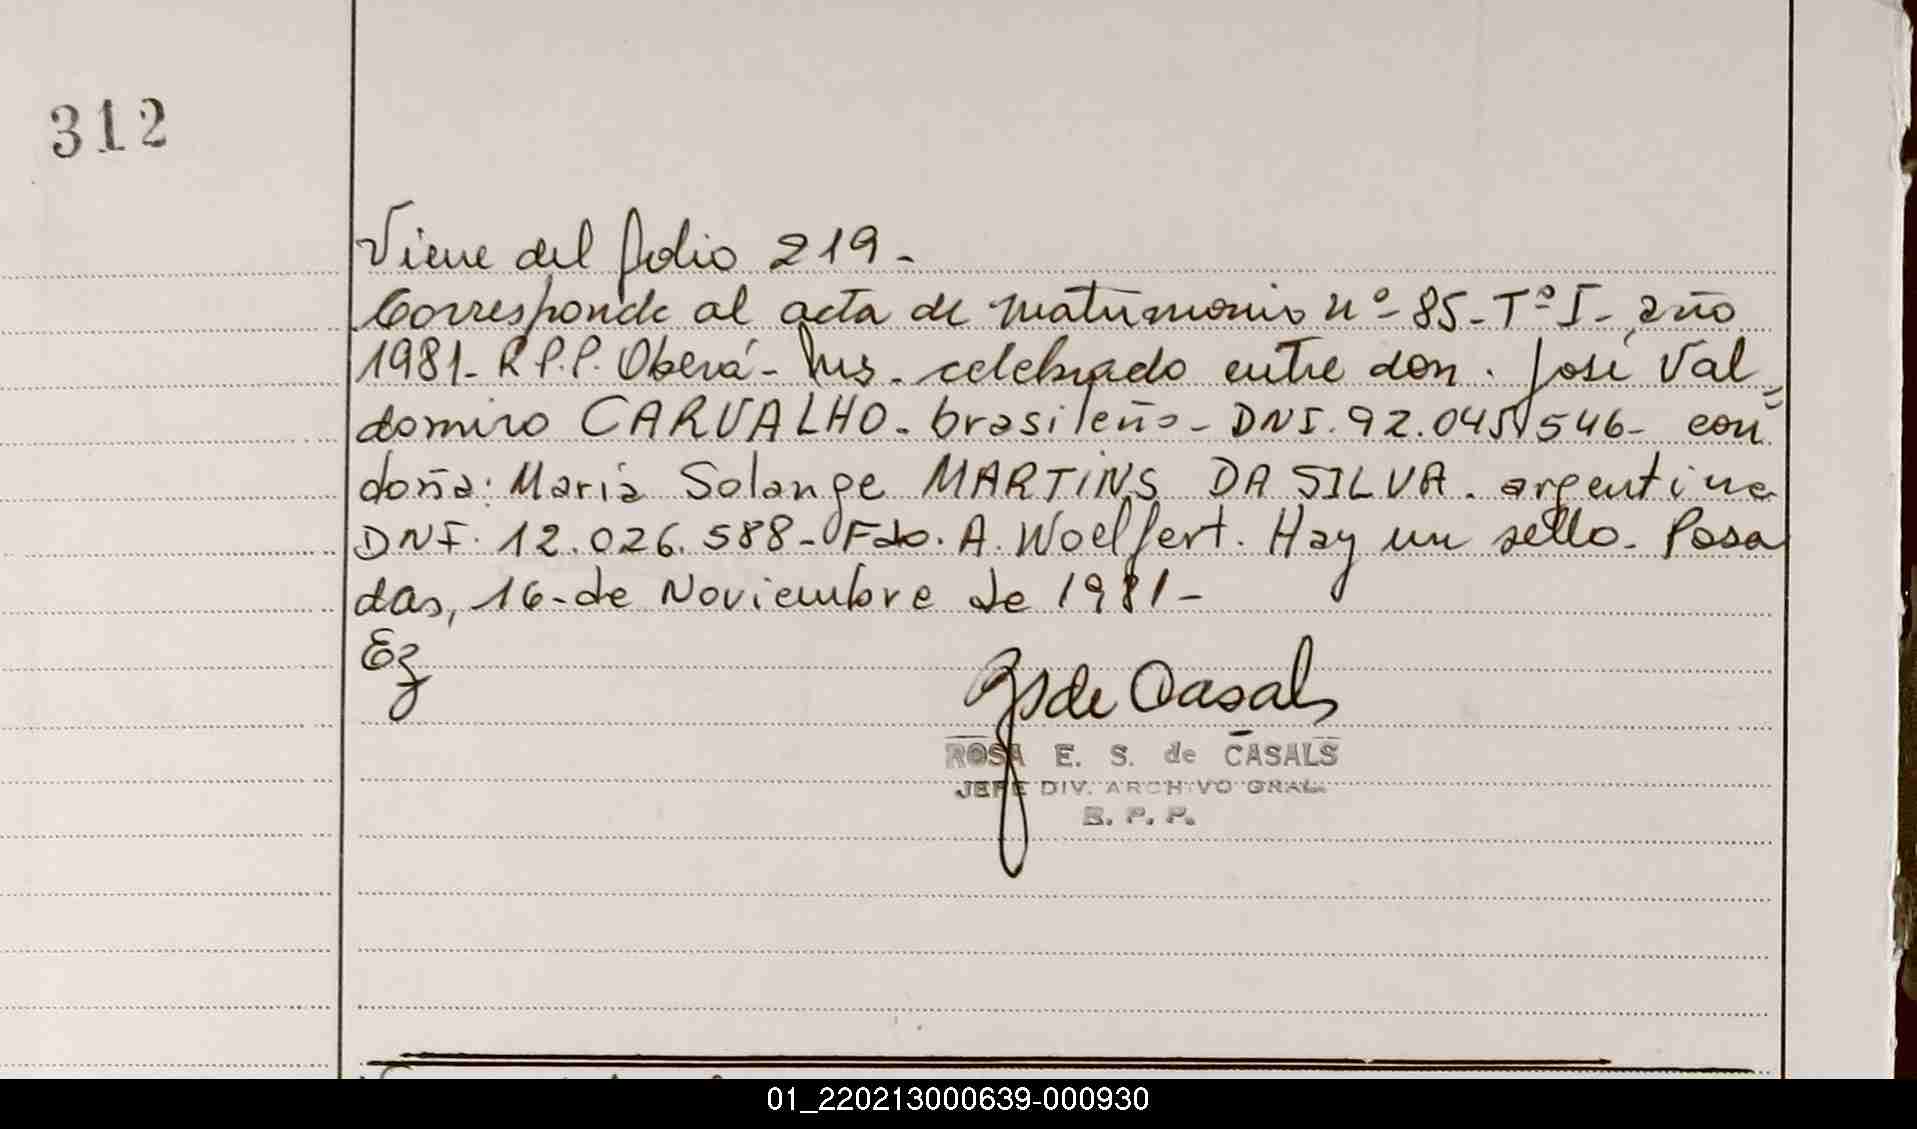 312
Viene del folio 219-
Corresponde al acta de matrimonio nº-85-Tº I- año
1981- R.P.P. Oberá- Ms. celebrado entre don. José Val=
domiro CARVALHO- brasileño- DNI. 92.045.546- con
doña: Maria Solange MARTINS DA SILVA. argentina
DNI. 12.026.588- Fdo. A. Woelfert. Hay un sello- Posa
das, 16-de Noviembre de 1981-
Ez
RS de Casals
ROSA E. S. de CASALS
JEFE DIV. ARCHIVO GRAL.
R. P. P.
01_220213000639-000930